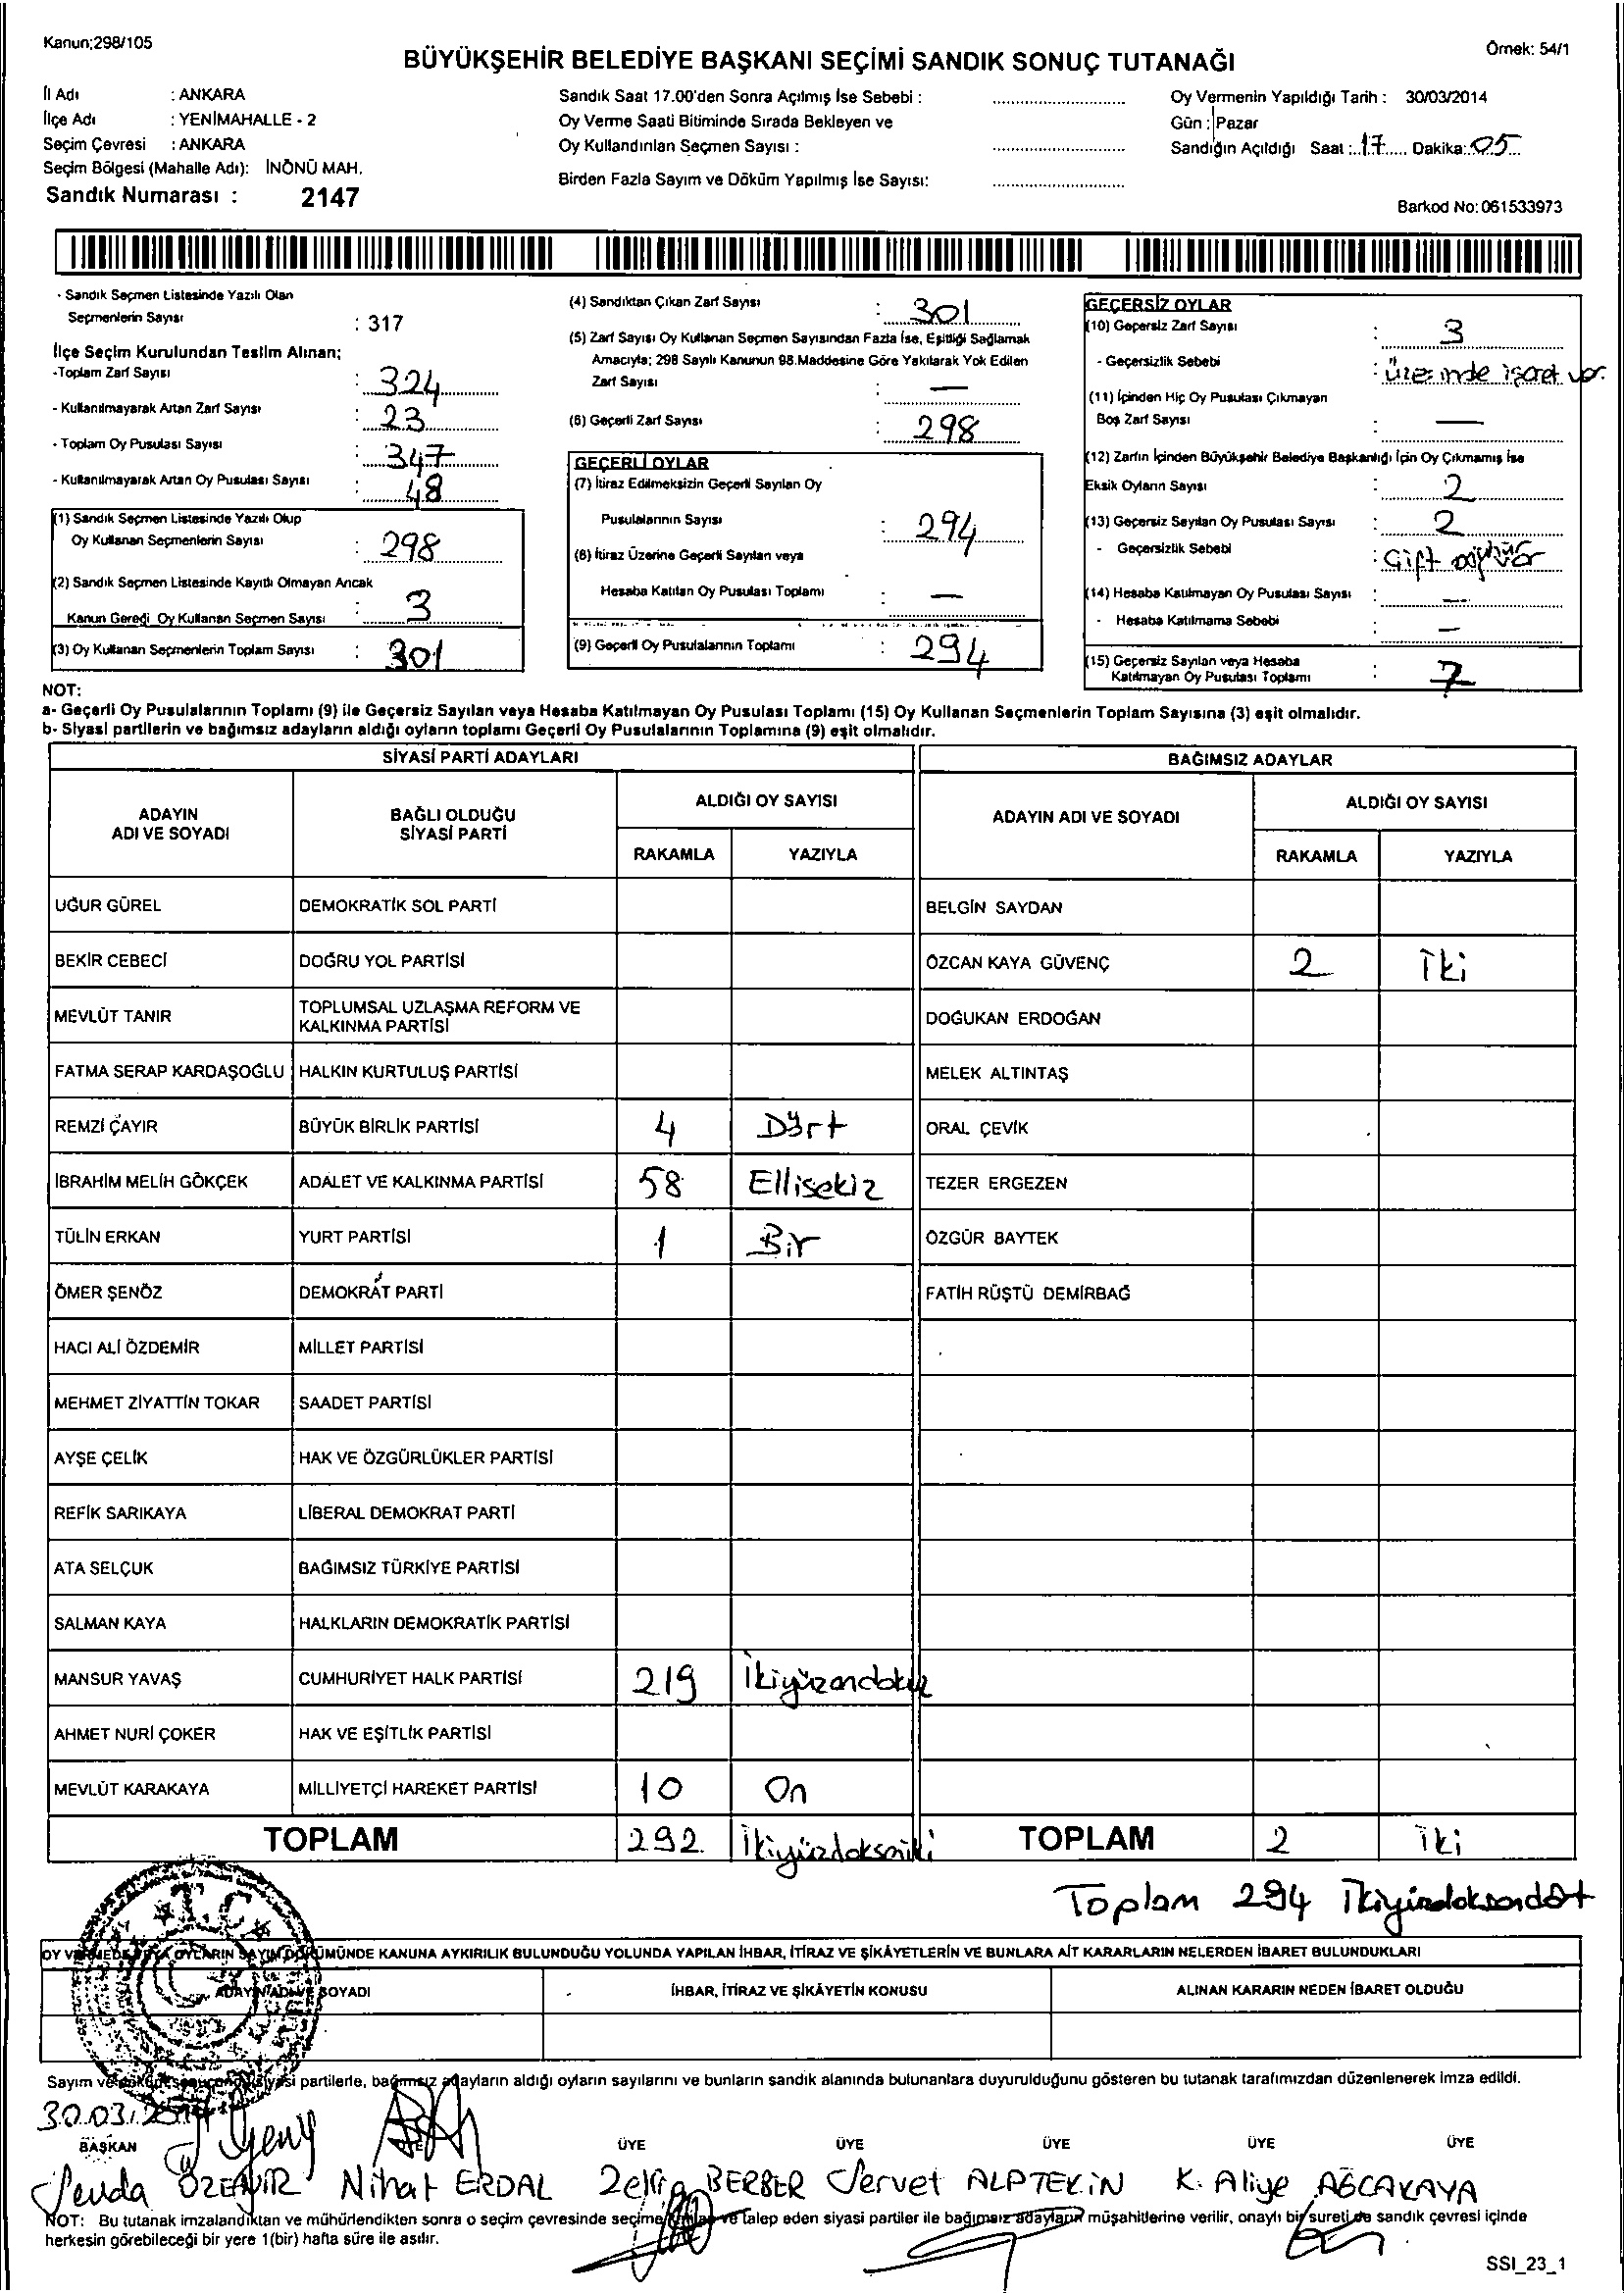 Kanun;298/105
Örnek: 54/1
BÜYÜKŞEHİR BELEDİYE BAŞKANI SEÇİMİ SANDIK SONUÇ TUTANAĞI
İl Adı : ANKARA
İlçe Adı : YENİMAHALLE - 2
Seçim Çevresi : ANKARA
Seçim Bölgesi (Mahalle Adı): İNÖNÜ MAH.
Sandık Numarası : 2147
Sandık Saat 17.00'den Sonra Açılmış İse Sebebi :
Oy Verme Saati Bitiminde Sırada Bekleyen ve
Oy Kullandırılan Seçmen Sayısı :
Birden Fazla Sayım ve Döküm Yapılmış İse Sayısı:
Oy Vermenin Yapıldığı Tarih : 30/03/2014
Gün : Pazar
Sandığın Açıldığı Saat : 17 Dakika: 05
Barkod No: 061533973
- Sandık Seçmen Listesinde Yazılı Olan
Seçmenlerin Sayısı : 317
İlçe Seçim Kurulundan Teslim Alınan;
-Toplam Zarf Sayısı : 324
- Kullanılmayarak Artan Zarf Sayısı : 23
- Toplam Oy Pusulası Sayısı : 347
- Kullanılmayarak Artan Oy Pusulası Sayısı : 48
(1) Sandık Seçmen Listesinde Yazılı Olup
Oy Kullanan Seçmenlerin Sayısı : 298
(2) Sandık Seçmen Listesinde Kayıtlı Olmayan Ancak
Kanun Gereği Oy Kullanan Seçmen Sayısı : 3
(3) Oy Kullanan Seçmenlerin Toplam Sayısı : 301
(4) Sandıktan Çıkan Zarf Sayısı : 301
(5) Zarf Sayısı Oy Kullanan Seçmen Sayısından Fazla İse, Eşitliği Sağlamak
Amacıyla; 298 Sayılı Kanunun 98.Maddesine Göre Yakılarak Yok Edilen
Zarf Sayısı : —
(6) Geçerli Zarf Sayısı : 298
GEÇERLİ OYLAR
(7) İtiraz Edilmeksizin Geçerli Sayılan Oy
Pusulalarının Sayısı : 294
(8) İtiraz Üzerine Geçerli Sayılan veya
Hesaba Katılan Oy Pusulası Toplamı : —
(9) Geçerli Oy Pusulalarının Toplamı : 294
GEÇERSİZ OYLAR
(10) Geçersiz Zarf Sayısı : 3
- Geçersizlik Sebebi : üzerinde işaret var.
(11) İçinden Hiç Oy Pusulası Çıkmayan
Boş Zarf Sayısı : —
(12) Zarfın İçinden Büyükşehir Belediye Başkanlığı İçin Oy Çıkmamış İse
Eksik Oyların Sayısı : 2
(13) Geçersiz Sayılan Oy Pusulası Sayısı : 2
- Geçersizlik Sebebi : Çift
(14) Hesaba Katılmayan Oy Pusulası Sayısı : —
- Hesaba Katılmama Sebebi : —
(15) Geçersiz Sayılan veya Hesaba
Katılmayan Oy Pusulası Toplamı : 7
NOT:
a- Geçerli Oy Pusulalarının Toplamı (9) ile Geçersiz Sayılan veya Hesaba Katılmayan Oy Pusulası Toplamı (15) Oy Kullanan Seçmenlerin Toplam Sayısına (3) eşit olmalıdır.
b- Siyasi partilerin ve bağımsız adayların aldığı oyların toplamı Geçerli Oy Pusulalarının Toplamına (9) eşit olmalıdır.
SİYASİ PARTİ ADAYLARI
BAĞIMSIZ ADAYLAR
ADAYIN ADI VE SOYADI
BAĞLI OLDUĞU SİYASİ PARTİ
ALDIĞI OY SAYISI
RAKAMLA YAZIYLA
ADAYIN ADI VE SOYADI
ALDIĞI OY SAYISI
RAKAMLA YAZIYLA
UĞUR GÜREL DEMOKRATİK SOL PARTİ BELGİN SAYDAN
BEKİR CEBECİ DOĞRU YOL PARTİSİ ÖZCAN KAYA GÜVENÇ 2 İki
MEVLÜT TANIR TOPLUMSAL UZLAŞMA REFORM VE KALKINMA PARTİSİ DOĞUKAN ERDOĞAN
FATMA SERAP KARDAŞOĞLU HALKIN KURTULUŞ PARTİSİ MELEK ALTINTAŞ
REMZİ ÇAYIR BÜYÜK BİRLİK PARTİSİ 4 Dört ORAL ÇEVİK
İBRAHİM MELİH GÖKÇEK ADALET VE KALKINMA PARTİSİ 58 Ellisekiz TEZER ERGEZEN
TÜLİN ERKAN YURT PARTİSİ 1 Bir ÖZGÜR BAYTEK
ÖMER ŞENÖZ DEMOKRAT PARTİ FATİH RÜŞTÜ DEMİRBAĞ
HACI ALİ ÖZDEMİR MİLLET PARTİSİ
MEHMET ZİYATTİN TOKAR SAADET PARTİSİ
AYŞE ÇELİK HAK VE ÖZGÜRLÜKLER PARTİSİ
REFİK SARIKAYA LİBERAL DEMOKRAT PARTİ
ATA SELÇUK BAĞIMSIZ TÜRKİYE PARTİSİ
SALMAN KAYA HALKLARIN DEMOKRATİK PARTİSİ
MANSUR YAVAŞ CUMHURİYET HALK PARTİSİ 219 İkiyüzondokuz
AHMET NURİ ÇOKER HAK VE EŞİTLİK PARTİSİ
MEVLÜT KARAKAYA MİLLİYETÇİ HAREKET PARTİSİ 10 On
TOPLAM 292 İkiyüzdoksaniki TOPLAM 2 İki
Toplam 294 İkiyüzdoksandört
OY VERMEDE VEYA OYLARIN SAYIM DÖKÜMÜNDE KANUNA AYKIRILIK BULUNDUĞU YOLUNDA YAPILAN İHBAR, İTİRAZ VE ŞİKÂYETLERİN VE BUNLARA AİT KARARLARIN NELERDEN İBARET BULUNDUKLARI
ADAYIN ADI VE SOYADI İHBAR, İTİRAZ VE ŞİKÂYETİN KONUSU ALINAN KARARIN NEDEN İBARET OLDUĞU
T.C.
Sayım ve döküm sonucunda siyasi partilerle, bağımsız adayların aldığı oyların sayılarını ve bunların sandık alanında bulunanlara duyurulduğunu gösteren bu tutanak tarafımızdan düzenlenerek imza edildi.
30.03.2014
BAŞKAN ÜYE ÜYE ÜYE ÜYE ÜYE
Sevda ÖZENİR Nihat ERDAL Zekiye BERBER Servet ALPTEKİN K. Aliye AĞCAKAYA
NOT: Bu tutanak imzalandıktan ve mühürlendikten sonra o seçim çevresinde seçime katılan ve talep eden siyasi partiler ile bağımsız adayların müşahitlerine verilir, onaylı bir sureti de sandık çevresi içinde
herkesin görebileceği bir yere 1(bir) hafta süre ile asılır.
SSI_23_1